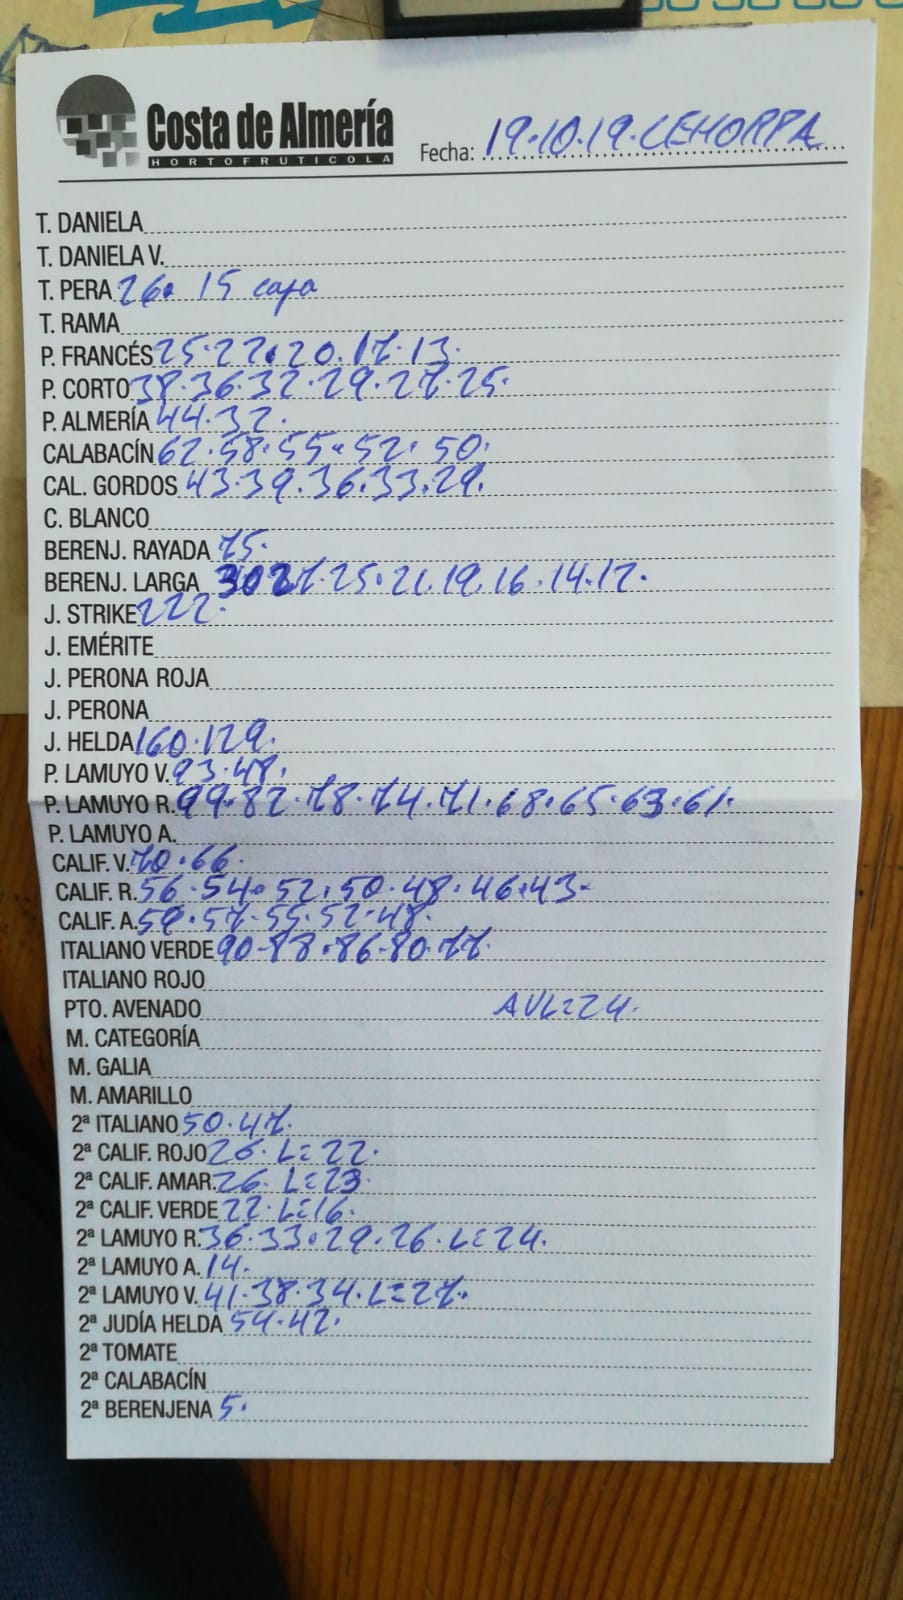 Costa de Almería
HORTOFRUTICOLA
Fecha: 19.10.19. CEHORPA
T. DANIELA
T. DANIELA V.
T. PERA 26. 15 capa
T. RAMA
P. FRANCÉS 25.22.20.17.13.
P. CORTO 38.36.32.29.27.25.
P. ALMERÍA 44.32.
CALABACÍN 62.58.55.52.50.
CAL. GORDOS 43.39.36.33.29.
C. BLANCO
BERENJ. RAYADA 75.
BERENJ. LARGA 30 27.25.21.19.16.14.12.
J. STRIKE 222.
J. EMÉRITE
J. PERONA ROJA
J. PERONA
J. HELDA 160.129.
P. LAMUYO V. 93.48.
P. LAMUYO R. 99.82.78.74.71.68.65.63.61.
P. LAMUYO A.
CALIF. V. 70.66.
CALIF. R. 56.54.52.50.48.46.43.
CALIF. A. 59.57.55.52.48.
ITALIANO VERDE 90.88.86.80.77.
ITALIANO ROJO
PTO. AVENADO AVL=24.
M. CATEGORÍA
M. GALIA
M. AMARILLO
2ª ITALIANO 50.47.
2ª CALIF. ROJO 26. L=22.
2ª CALIF. AMAR. 26. L=23.
2ª CALIF. VERDE 22. L=16.
2ª LAMUYO R. 36.33.29.26. L=24.
2ª LAMUYO A. 14.
2ª LAMUYO V. 41.38.34. L=27.
2ª JUDÍA HELDA 54.42.
2ª TOMATE
2ª CALABACÍN
2ª BERENJENA 5.